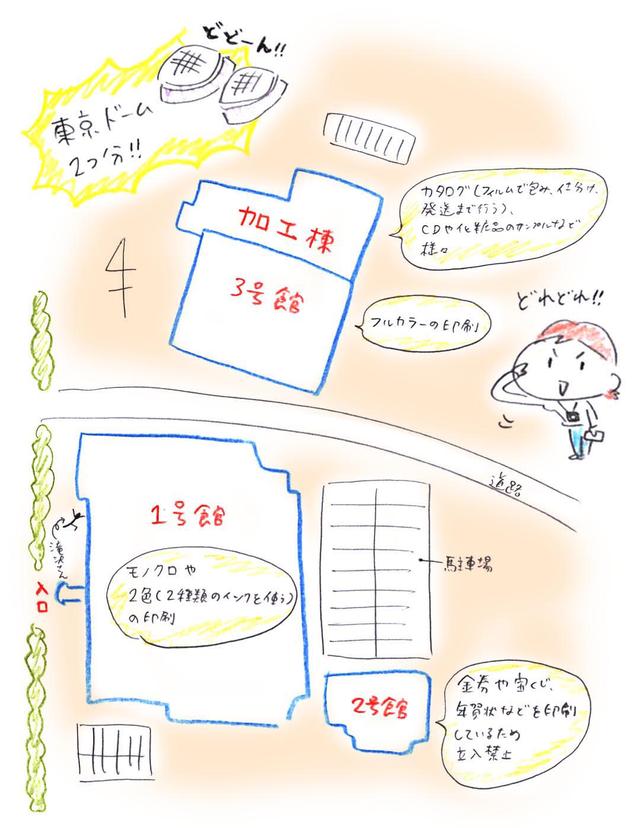 どどーん!!
東京ドーム
2つ分!!
加工棟
カタログ(フィルムで包み、仕分け、
発送まで行う)、
CDや化粧品のサンプルなど
様々
3号館
フルカラーの印刷
どれどれ!!
道路
1号館
モノクロや
2色(2種類のインクを使う)
の印刷
滝沢さん
入口
駐車場
2号館
金券や宝くじ、
年賀状などを印刷
しているため
立入禁止